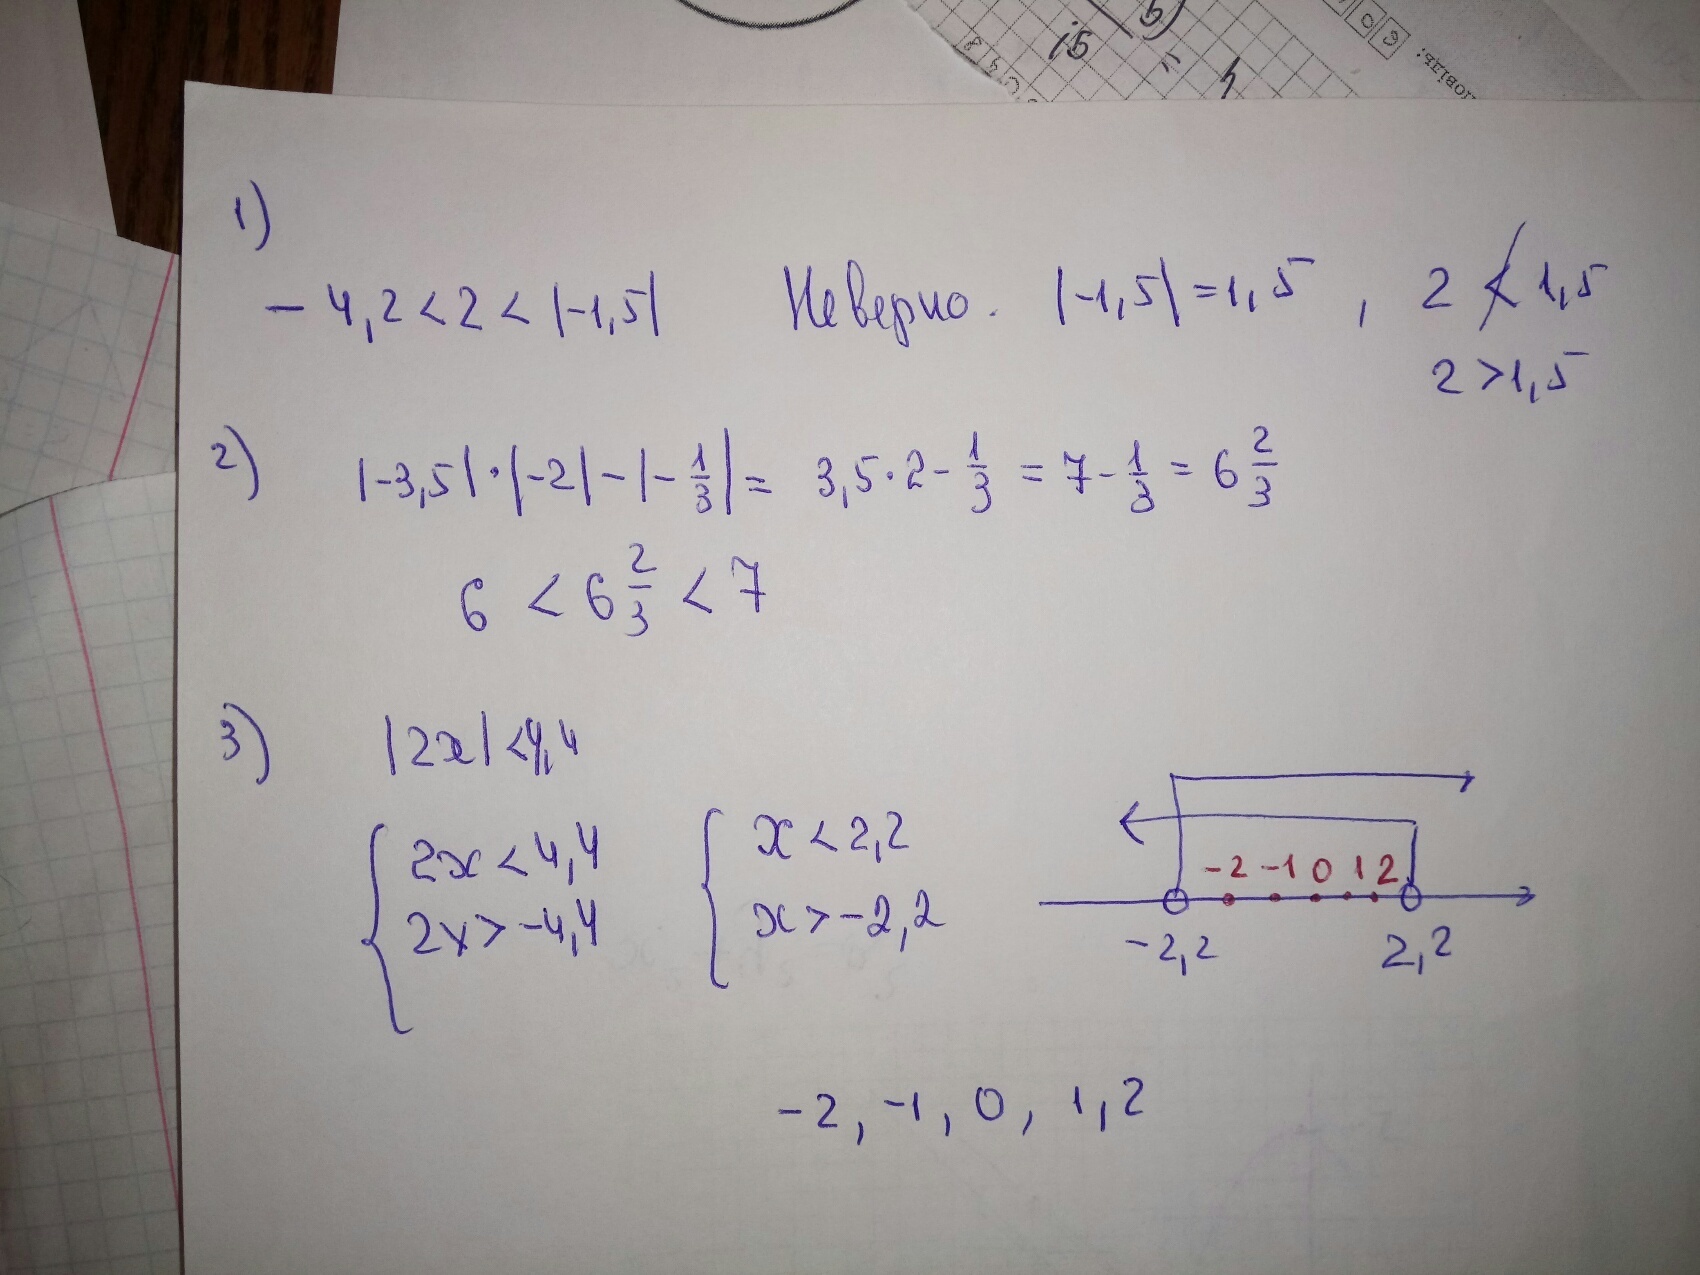 15 b)
1)
- 4,2 < 2 < |-1,5| Неверно. |-1,5| = 1,5 , 2 ≮ 1,5
2 > 1,5
2) |-3,5| · |-2| - |-1/3| = 3,5 · 2 - 1/3 = 7 - 1/3 = 6 2/3
6 < 6 2/3 < 7
3) |2x| < 4,4
{ 2x < 4,4 { x < 2,2
2x > -4,4 x > -2,2
-2 -1 0 1 2
-2,2 2,2
-2, -1, 0, 1, 2